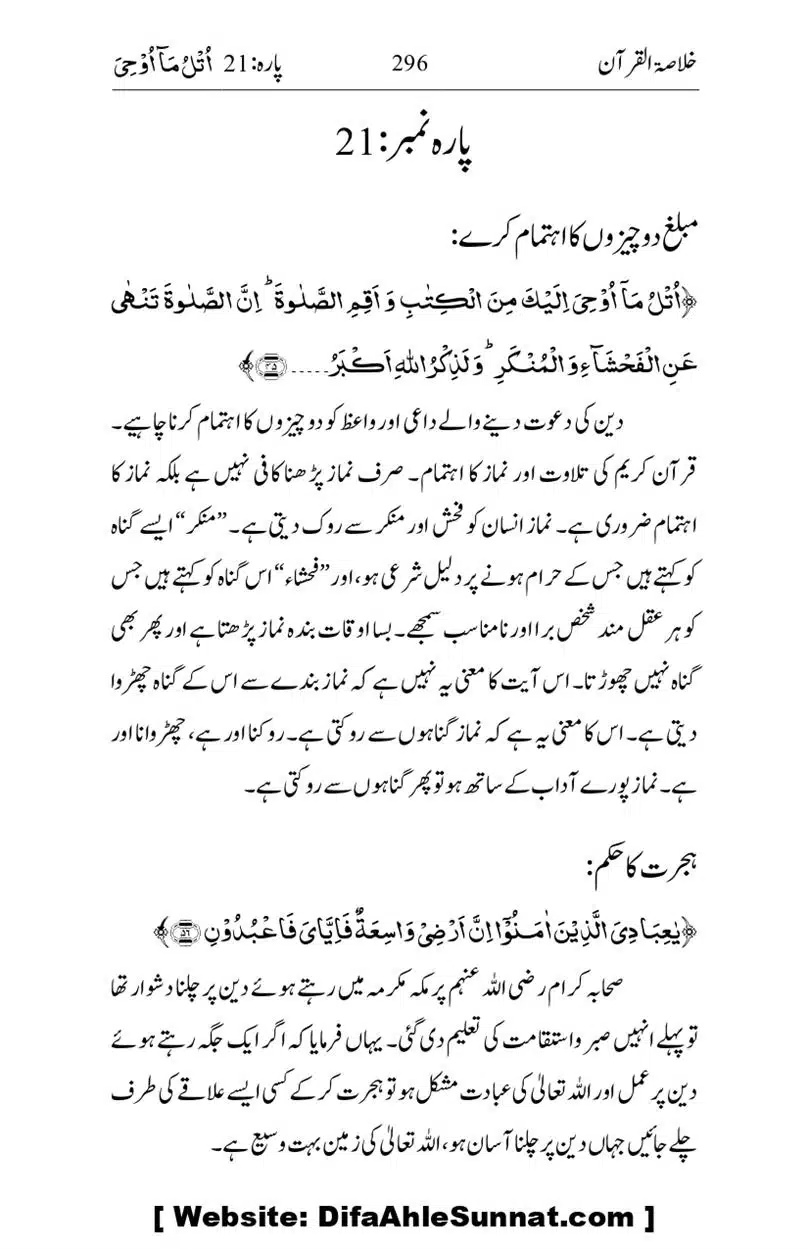 خلاصۃ القرآن 296 پارہ:21 اُتْلُ مَآ اُوْحِیَ
پارہ نمبر:21
مبلغ دو چیزوں کا اہتمام کرے:
﴿اُتْلُ مَآ اُوْحِیَ اِلَیْكَ مِنَ الْكِتٰبِ وَ اَقِمِ الصَّلٰوةَ ؕ اِنَّ الصَّلٰوةَ تَنْهٰی
عَنِ الْفَحْشَآءِ وَ الْمُنْكَرِ ؕ وَ لَذِكْرُ اللهِ اَكْبَرُ..... ﴿۴۵﴾﴾
دین کی دعوت دینے والے داعی اور واعظ کو دو چیزوں کا اہتمام کرنا چاہیے۔
قرآن کریم کی تلاوت اور نماز کا اہتمام۔ صرف نماز پڑھنا کافی نہیں ہے بلکہ نماز کا
اہتمام ضروری ہے۔ نماز انسان کو فحش اور منکر سے روک دیتی ہے۔ ”منکر“ ایسے گناہ
کو کہتے ہیں جس کے حرام ہونے پر دلیل شرعی ہو، اور ”فحشاء“ اس گناہ کو کہتے ہیں جس
کو ہر عقل مند شخص برا اور نامناسب سمجھے۔ بسا اوقات بندہ نماز پڑھتا ہے اور پھر بھی
گناہ نہیں چھوڑتا۔ اس آیت کا معنی یہ نہیں ہے کہ نماز بندے سے اس کے گناہ چھڑوا
دیتی ہے۔ اس کا معنی یہ ہے کہ نماز گناہوں سے روکتی ہے۔ روکنا اور ہے، چھڑوانا اور
ہے۔ نماز پورے آداب کے ساتھ ہو تو پھر گناہوں سے روکتی ہے۔
ہجرت کا حکم:
﴿یٰعِبَادِیَ الَّذِیْنَ اٰمَنُوْۤا اِنَّ اَرْضِیْ وَاسِعَةٌ فَاِیَّایَ فَاعْبُدُوْنِ ﴿۵۶﴾﴾
صحابہ کرام رضی اللہ عنہم پر مکہ مکرمہ میں رہتے ہوئے دین پر چلنا دشوار تھا
تو پہلے انہیں صبر واستقامت کی تعلیم دی گئی۔ یہاں فرمایا کہ اگر ایک جگہ رہتے ہوئے
دین پر عمل اور اللہ تعالیٰ کی عبادت مشکل ہو تو ہجرت کر کے کسی ایسے علاقے کی طرف
چلے جائیں جہاں دین پر چلنا آسان ہو، اللہ تعالیٰ کی زمین بہت وسیع ہے۔
[ Website: DifaAhleSunnat.com ]